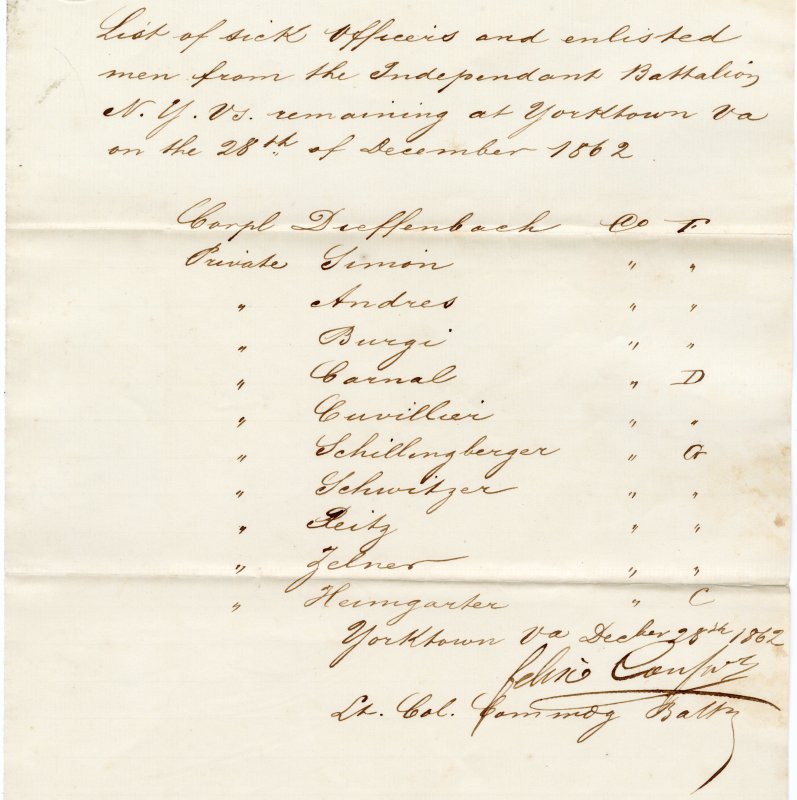 List of sick Officers and enlisted
men from the Independant Battalion
N. Y. Vs. remaining at Yorktown Va
on the 28th of December 1862
Corpl Dieffenbach Co F
Private Simon " "
" Andres " "
" Burgi " "
" Carnal " D
" Cuvillier " "
" Schillingberger " G
" Schwitzer " "
" Reitz " "
" Zelner " "
" Heimgarter " C
Yorktown Va Decber 28th 1862
Felix Confort
Lt. Col. Commdg Battn